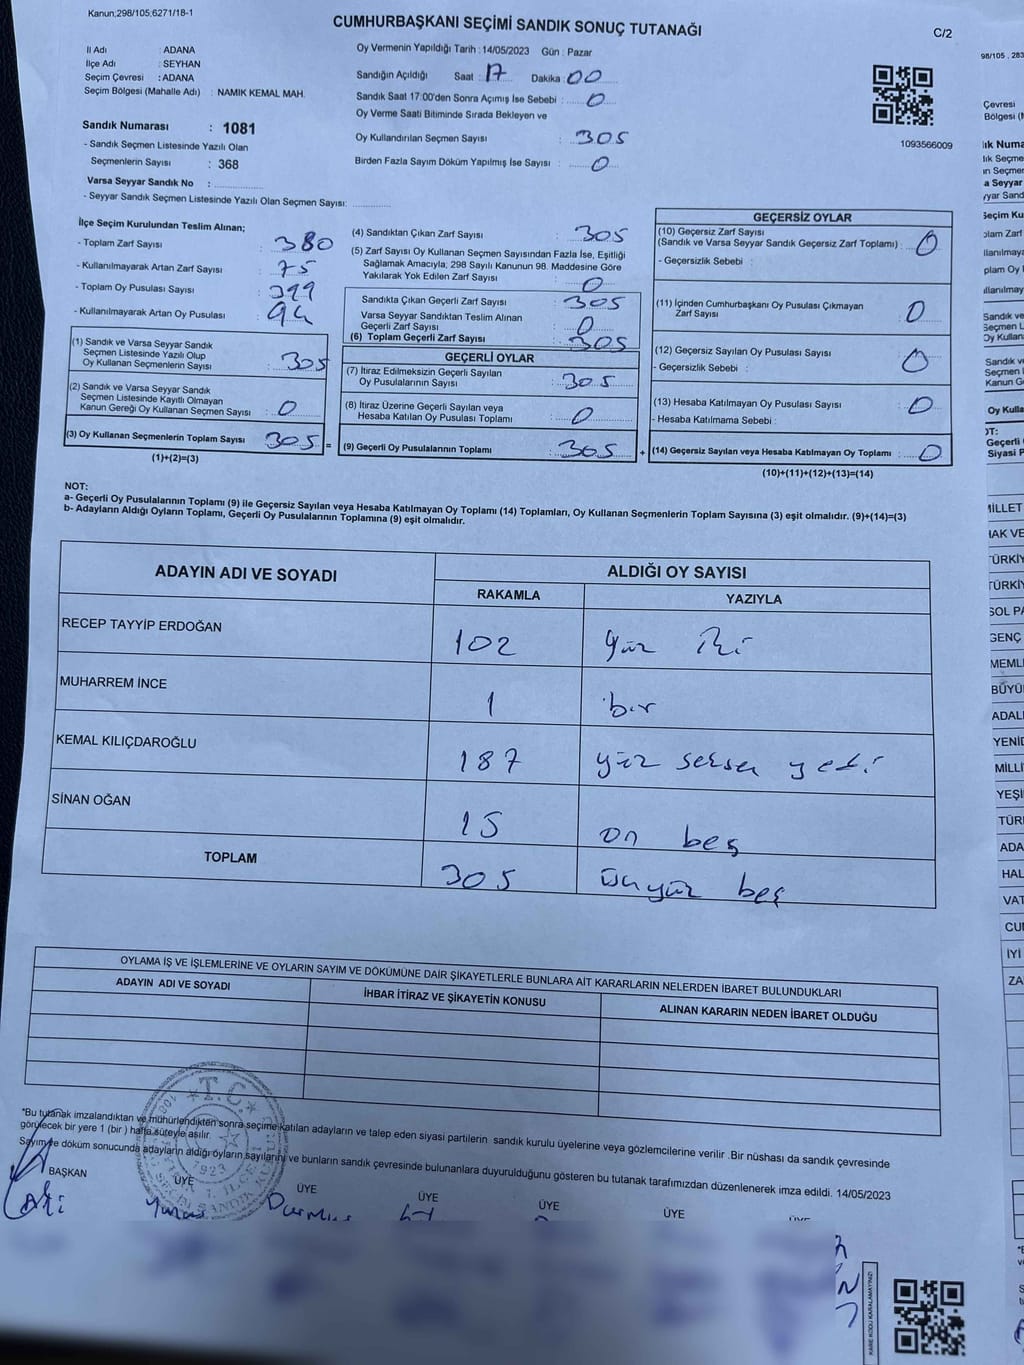 Kanun;298/105;6271/18-1
CUMHURBAŞKANI SEÇİMİ SANDIK SONUÇ TUTANAĞI
C/2
İl Adı : ADANA
İlçe Adı : SEYHAN
Seçim Çevresi : ADANA
Seçim Bölgesi (Mahalle Adı) : NAMIK KEMAL MAH.
Sandık Numarası : 1081
- Sandık Seçmen Listesinde Yazılı Olan
Seçmenlerin Sayısı : 368
Varsa Seyyar Sandık No :
- Seyyar Sandık Seçmen Listesinde Yazılı Olan Seçmen Sayısı:
Oy Vermenin Yapıldığı Tarih : 14/05/2023 Gün : Pazar
Sandığın Açıldığı Saat : 17 Dakika : 00
Sandık Saat 17:00'den Sonra Açımış İse Sebebi : 0
Oy Verme Saati Bitiminde Sırada Bekleyen ve
Oy Kullandırılan Seçmen Sayısı : 305
Birden Fazla Sayım Döküm Yapılmış İse Sayısı : 0
1093566009
İlçe Seçim Kurulundan Teslim Alınan;
- Toplam Zarf Sayısı : 380
- Kullanılmayarak Artan Zarf Sayısı : 75
- Toplam Oy Pusulası Sayısı : 399
- Kullanılmayarak Artan Oy Pusulası : 94
(1) Sandık ve Varsa Seyyar Sandık
Seçmen Listesinde Yazılı Olup
Oy Kullanan Seçmenlerin Sayısı : 305
(2) Sandık ve Varsa Seyyar Sandık
Seçmen Listesinde Kayıtlı Olmayan
Kanun Gereği Oy Kullanan Seçmen Sayısı : 0
(3) Oy Kullanan Seçmenlerin Toplam Sayısı : 305 =
(1)+(2)=(3)
(4) Sandıktan Çıkan Zarf Sayısı : 305
(5) Zarf Sayısı Oy Kullanan Seçmen Sayısından Fazla İse, Eşitliği
Sağlamak Amacıyla, 298 Sayılı Kanunun 98. Maddesine Göre
Yakılarak Yok Edilen Zarf Sayısı : 0
Sandıkta Çıkan Geçerli Zarf Sayısı : 305
Varsa Seyyar Sandıktan Teslim Alınan
Geçerli Zarf Sayısı : 0
(6) Toplam Geçerli Zarf Sayısı : 305
GEÇERLİ OYLAR
(7) İtiraz Edilmeksizin Geçerli Sayılan
Oy Pusulalarının Sayısı : 305
(8) İtiraz Üzerine Geçerli Sayılan veya
Hesaba Katılan Oy Pusulası Toplamı : 0
(9) Geçerli Oy Pusulalarının Toplamı : 305 +
GEÇERSİZ OYLAR
(10) Geçersiz Zarf Sayısı
(Sandık ve Varsa Seyyar Sandık Geçersiz Zarf Toplamı) : 0
- Geçersizlik Sebebi :
(11) İçinden Cumhurbaşkanı Oy Pusulası Çıkmayan
Zarf Sayısı : 0
(12) Geçersiz Sayılan Oy Pusulası Sayısı : 0
- Geçersizlik Sebebi :
(13) Hesaba Katılmayan Oy Pusulası Sayısı : 0
- Hesaba Katılmama Sebebi :
(14) Geçersiz Sayılan veya Hesaba Katılmayan Oy Toplamı : 0
(10)+(11)+(12)+(13)=(14)
NOT:
a- Geçerli Oy Pusulalarının Toplamı (9) ile Geçersiz Sayılan veya Hesaba Katılmayan Oy Toplamı (14) Toplamları, Oy Kullanan Seçmenlerin Toplam Sayısına (3) eşit olmalıdır. (9)+(14)=(3)
b- Adayların Aldığı Oyların Toplamı, Geçerli Oy Pusulalarının Toplamına (9) eşit olmalıdır.
ADAYIN ADI VE SOYADI
ALDIĞI OY SAYISI
RAKAMLA YAZIYLA
RECEP TAYYİP ERDOĞAN 102 yüz iki
MUHARREM İNCE 1 bir
KEMAL KILIÇDAROĞLU 187 yüz seksen yedi
SİNAN OĞAN 15 on beş
TOPLAM 305 üçyüz beş
OYLAMA İŞ VE İŞLEMLERİNE VE OYLARIN SAYIM VE DÖKÜMÜNE DAİR ŞİKAYETLERLE BUNLARA AİT KARARLARIN NELERDEN İBARET BULUNDUKLARI
ADAYIN ADI VE SOYADI İHBAR İTİRAZ VE ŞİKAYETİN KONUSU ALINAN KARARIN NEDEN İBARET OLDUĞU
*Bu tutanak imzalandıktan ve mühürlendikten sonra seçime katılan adayların ve talep eden siyasi partilerin sandık kurulu üyelerine veya gözlemcilerine verilir .Bir nüshası da sandık çevresinde
görülecek bir yere 1 (bir ) hafta süreyle asılır.
Sayım ve döküm sonucunda adayların aldığı oyların sayılarını ve bunların sandık çevresinde bulunanlara duyurulduğunu gösteren bu tutanak tarafımızdan düzenlenerek imza edildi. 14/05/2023
BAŞKAN ÜYE ÜYE ÜYE ÜYE ÜYE ÜYE
T.C.
1923
KARE KODU KARALAMAYINIZ!
98/105
Çevresi
a Seyyar
MİLLET
HAK VE
SOL PA
GENÇ